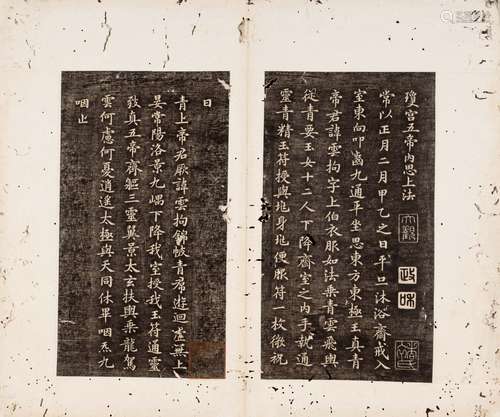 瓊宮五帝內思上法
常以正月二月甲乙之日平旦沐浴齋戒入
室東向叩齒九通平坐思東方東極玉真青
帝君諱雲拘字上伯衣服如法乘青雲飛輿
從青要玉女十二人下降齋室之內手執通
靈青精玉符授與兆身兆便服符一枚微祝
曰
青上帝君厥諱雲拘錦帔青裙遊迴虛無上
晏常陽洛景九嵎下降我室授我玉符通靈
致真五帝齊軀三靈翼景太玄扶輿乘龍駕
雲何慮何憂逍遙太極與天同休畢咽炁九
咽止
大觀
政和